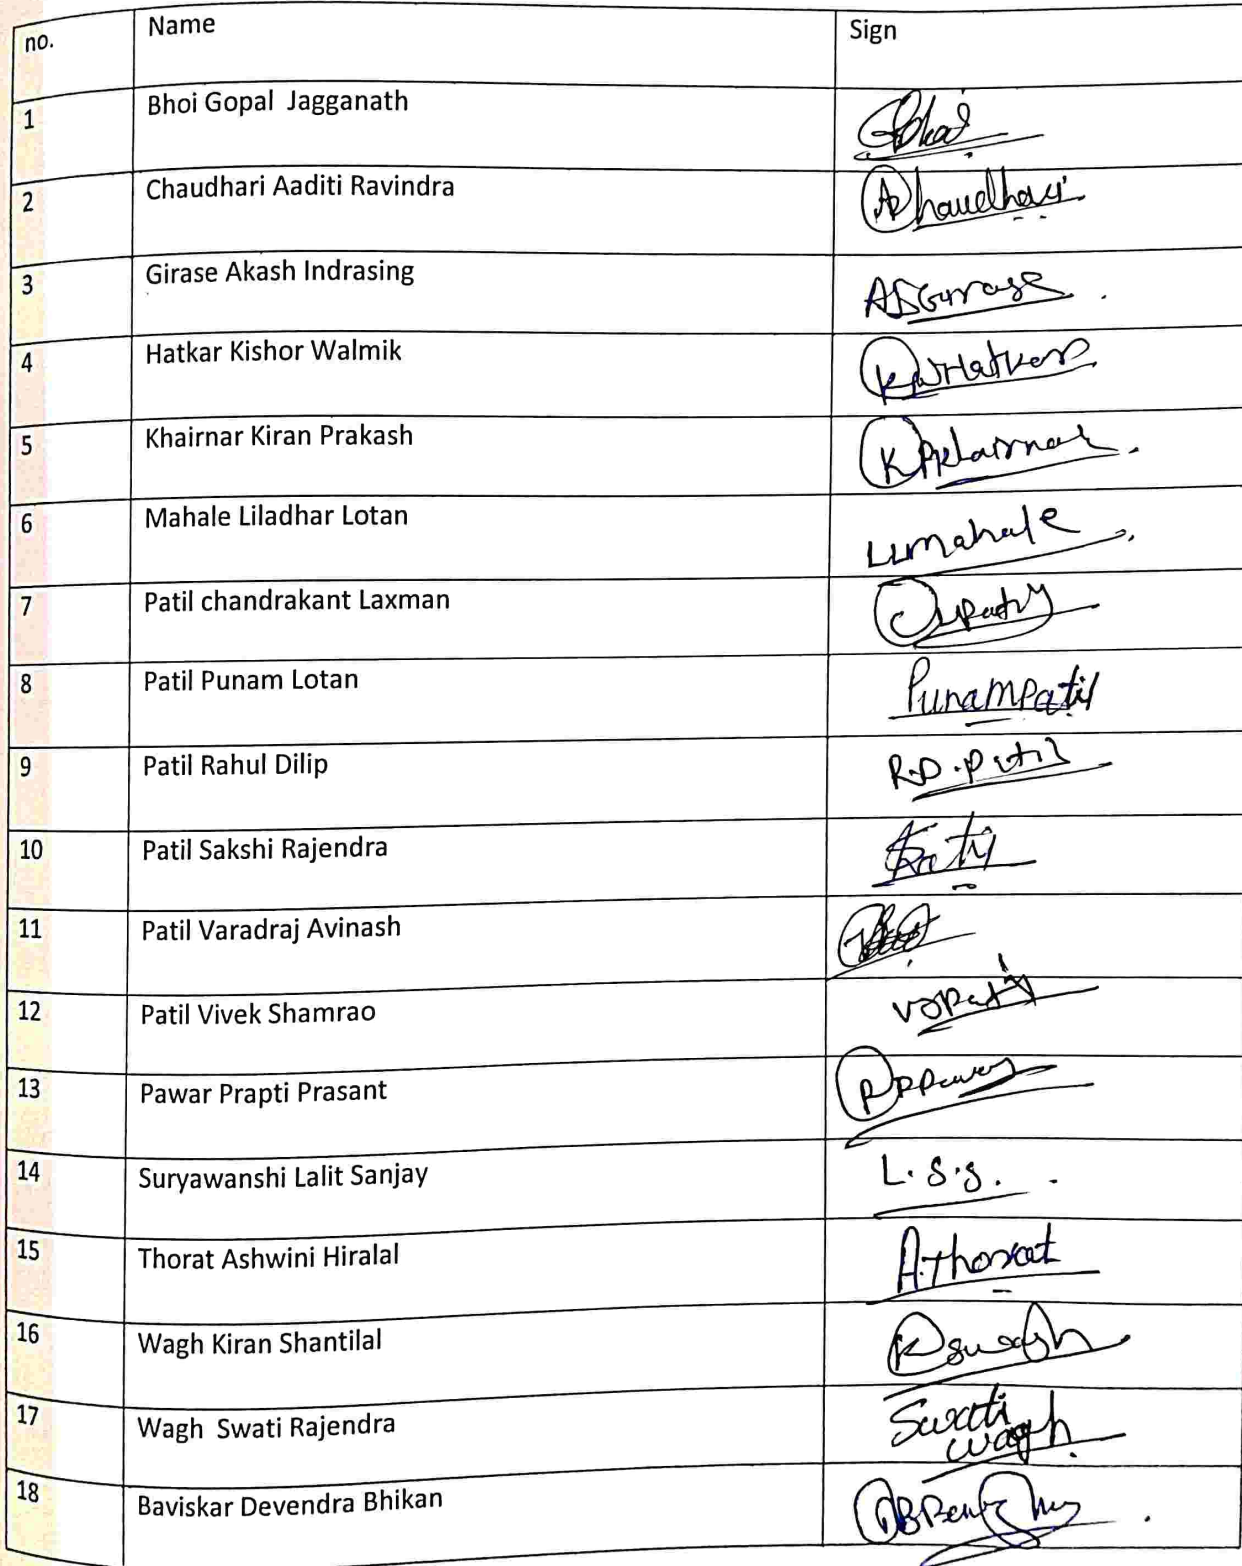 no. Name Sign
1 Bhoi Gopal Jagganath
2 Chaudhari Aaditi Ravindra AChaudhari
3 Girase Akash Indrasing AIGirase
4 Hatkar Kishor Walmik KWHatkar
5 Khairnar Kiran Prakash KPKhairnar
6 Mahale Liladhar Lotan LLMahale
7 Patil chandrakant Laxman CLPatil
8 Patil Punam Lotan PunamPatil
9 Patil Rahul Dilip R.D.Patil
10 Patil Sakshi Rajendra
11 Patil Varadraj Avinash
12 Patil Vivek Shamrao VSPatil
13 Pawar Prapti Prasant PPPawar
14 Suryawanshi Lalit Sanjay L.S.S.
15 Thorat Ashwini Hiralal A.Thorat
16 Wagh Kiran Shantilal KSWagh
17 Wagh Swati Rajendra Swati
wagh
18 Baviskar Devendra Bhikan